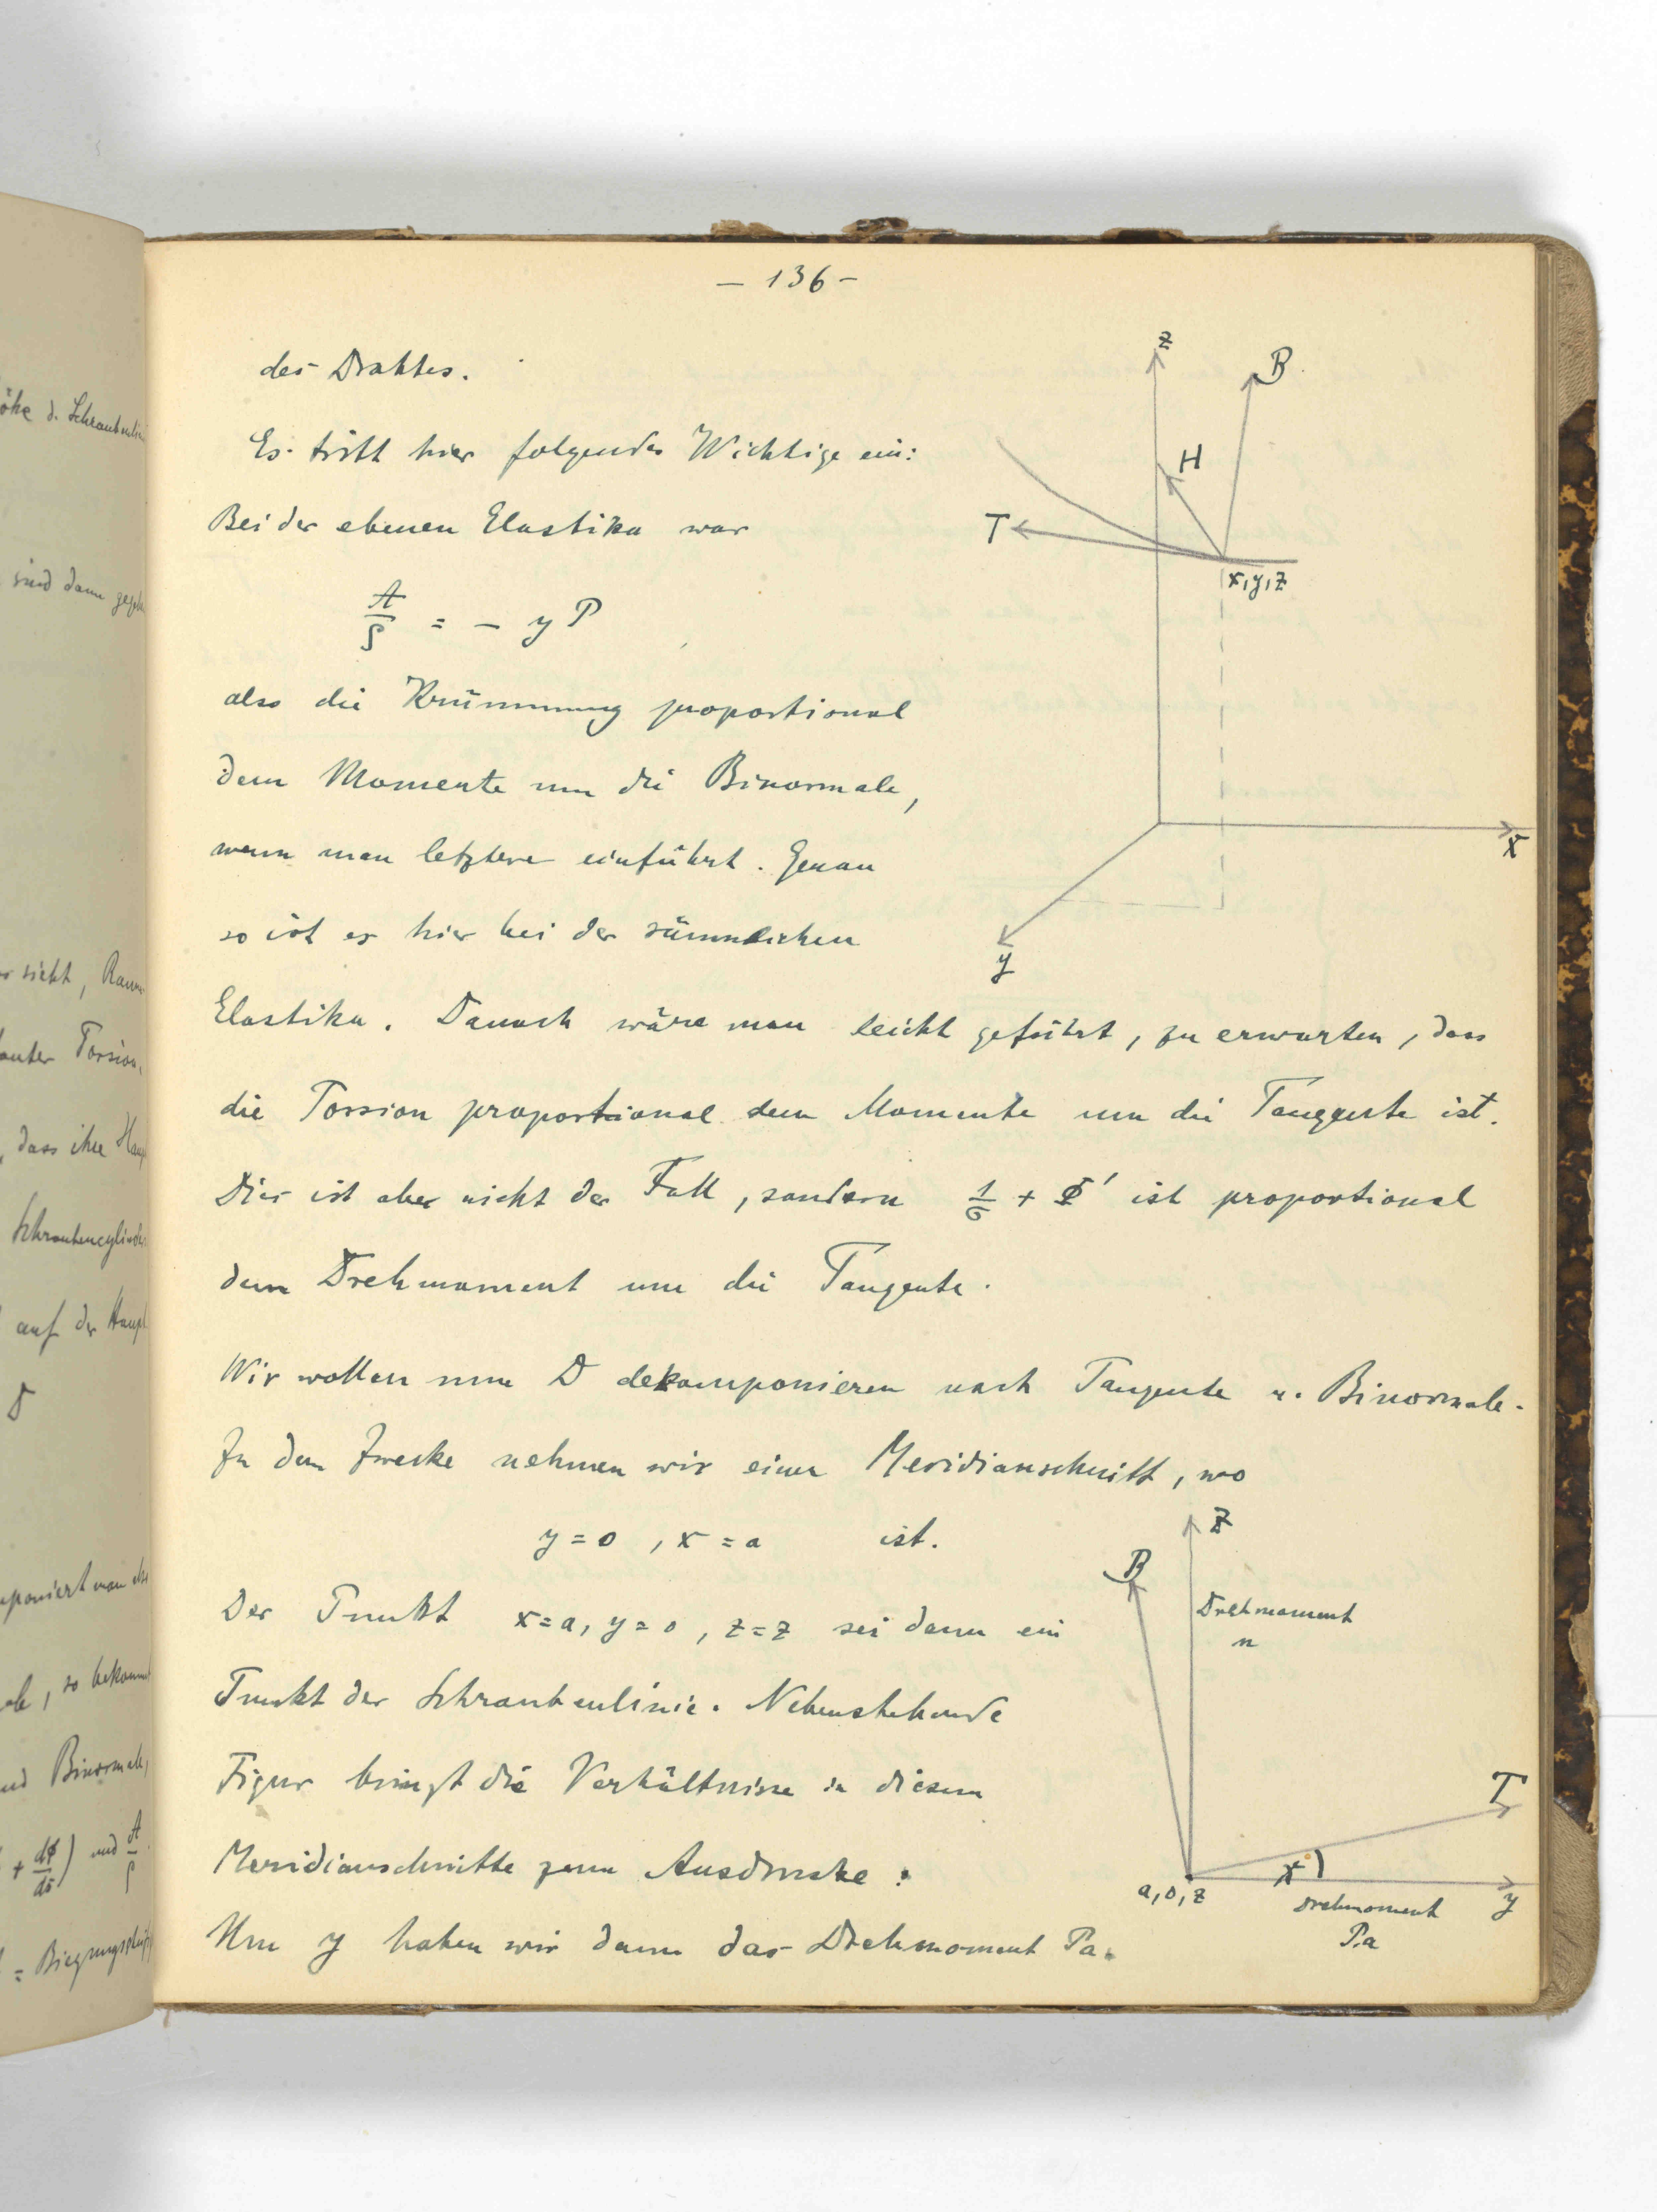 öhe d. Schraubenlin
sind dann gege
sieht, Raum
Torsion,
, dass ihre Haup
Schraubencylinder
auf der Haupt
D
so bekommt
und Binormale,
+ dΦ/ds) und A/ρ
= Biegungs
— 136 —
des Drahtes.
Es tritt hier folgendes Wichtige ein:
Bei der ebenen Elastika war
A/ρ = − y P
also die Krümmung proportional
dem Momente um die Binormale,
wenn man letztere einführt. Genau
so ist es hier bei der räumlichen
Elastika. Danach wäre man leicht geführt, zu erwarten, dass
die Torsion proportional dem Momente um die Tangente ist.
Dies ist aber nicht der Fall, sondern 1/σ + Φ' ist proportional
dem Drehmoment um die Tangente.
Wir wollen nun D dekomponieren nach Tangente u. Binormale.
Zu dem Zwecke nehmen wir einen Meridianschnitt, wo
y = 0 , x = a ist.
Der Punkt x = a, y = 0 , z = z sei dann ein
Punkt der Schraubenlinie. Nebenstehende
Figur bringt die Verhältnisse in diesem
Meridianschnitte zum Ausdrucke:
Um y haben wir dann das Drehmoment Pa.
z
B
H
T
x, y, z
x
y
z
B
Drehmoment
n
T
a, 0, z
y
Drehmoment
P.a